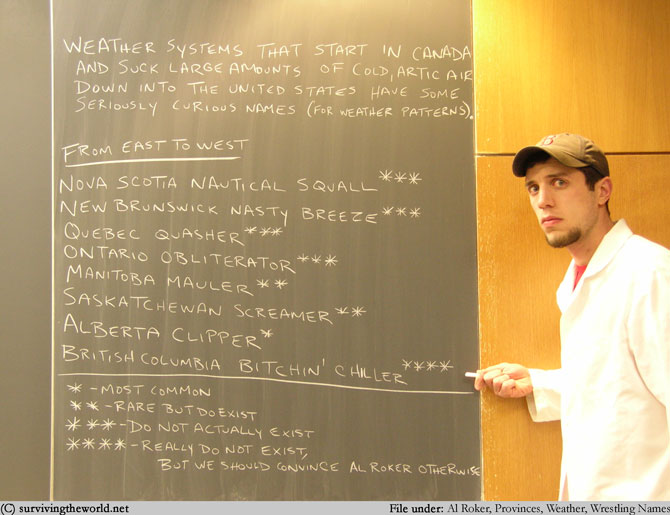 WEATHER SYSTEMS THAT START IN CANADA
AND SUCK LARGE AMOUNTS OF COLD, ARTIC AIR
DOWN INTO THE UNITED STATES HAVE SOME
SERIOUSLY CURIOUS NAMES (FOR WEATHER PATTERNS).
FROM EAST TO WEST
NOVA SCOTIA NAUTICAL SQUALL ***
NEW BRUNSWICK NASTY BREEZE ***
QUEBEC QUASHER ***
ONTARIO OBLITERATOR ***
MANITOBA MAULER **
SASKATCHEWAN SCREAMER **
ALBERTA CLIPPER *
BRITISH COLUMBIA BITCHIN' CHILLER ****
* - MOST COMMON
** - RARE BUT DO EXIST
*** - DO NOT ACTUALLY EXIST
**** - REALLY DO NOT EXIST,
BUT WE SHOULD CONVINCE AL ROKER OTHERWISE
(C) survivingtheworld.net File under: Al Roker, Provinces, Weather, Wrestling Names